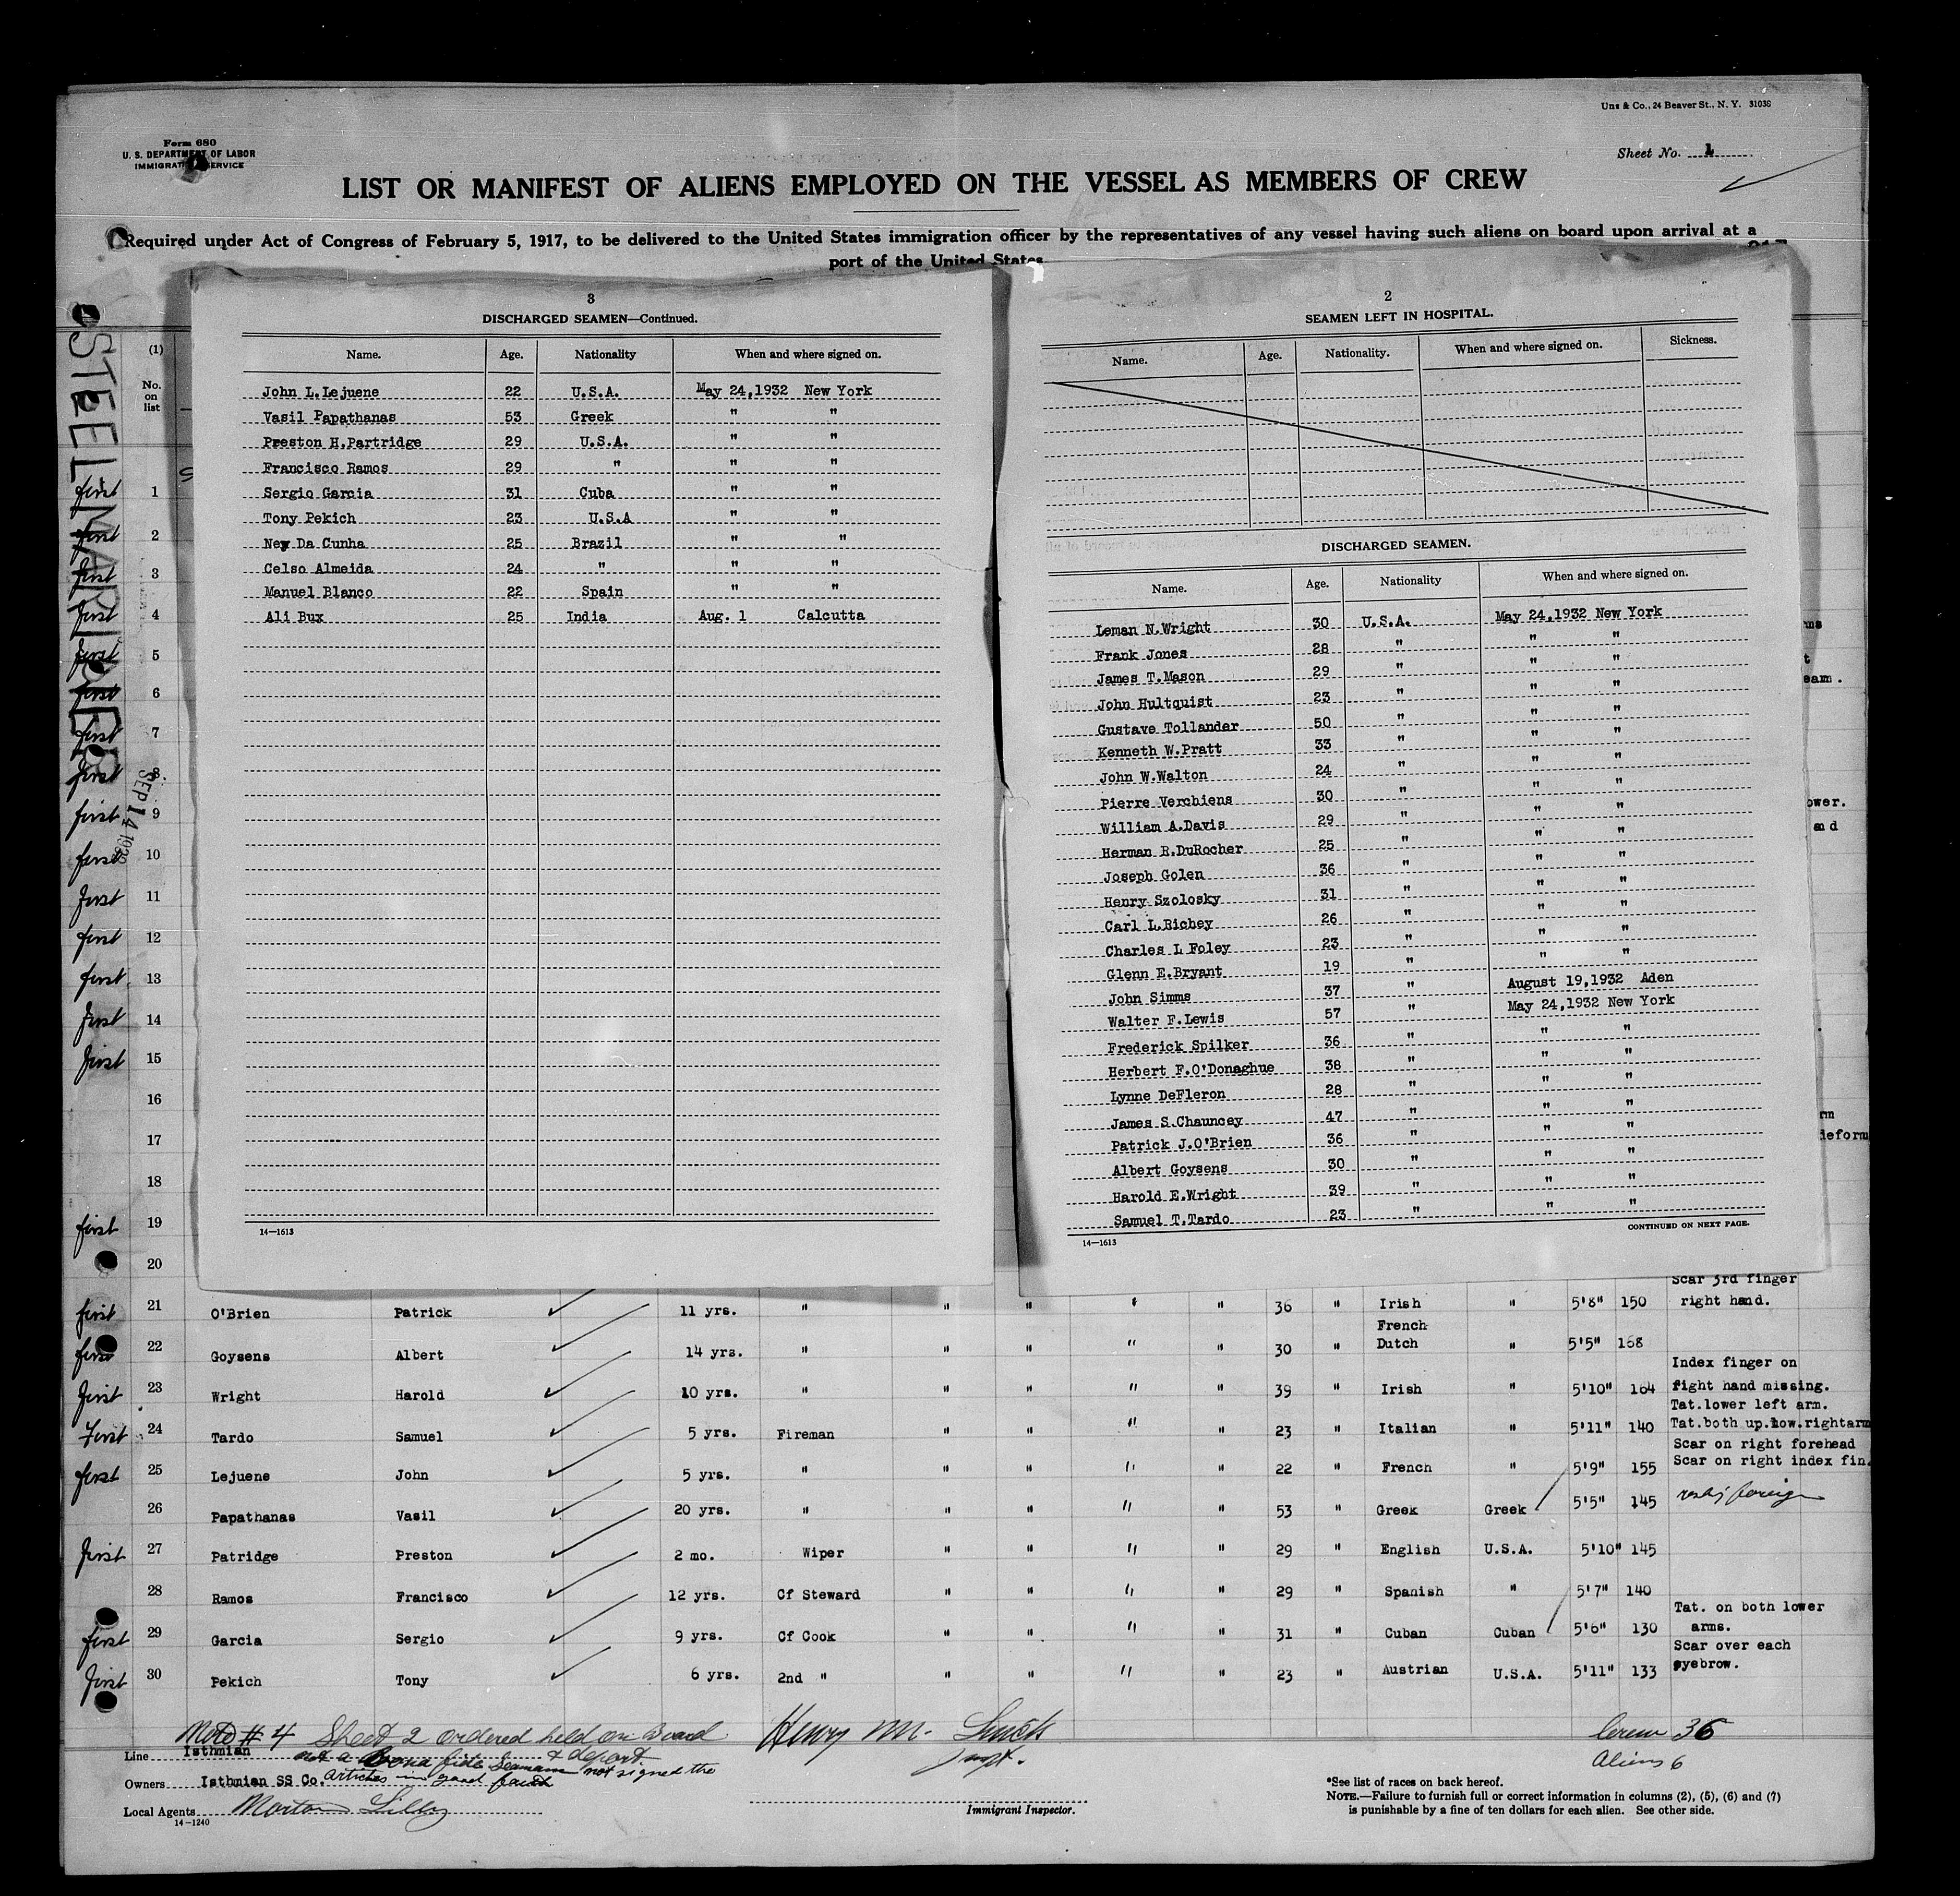 Uns & Co., 24 Beaver St., N. Y. 31038
Form 680
U. S. DEPARTMENT OF LABOR
IMMIGRATION SERVICE
Sheet No. 1
LIST OR MANIFEST OF ALIENS EMPLOYED ON THE VESSEL AS MEMBERS OF CREW
Required under Act of Congress of February 5, 1917, to be delivered to the United States immigration officer by the representatives of any vessel having such aliens on board upon arrival at a
port of the United States
STEEL MARINER
SEP 14 1932
3
DISCHARGED SEAMEN—Continued.
Name. Age. Nationality When and where signed on.
John L.Lejuene 22 U.S.A. May 24,1932 New York
Vasil Papathanas 53 Greek " "
Preston H.Partridge 29 U.S.A. " "
Francisco Ramos 29 " " "
Sergio Garcia 31 Cuba " "
Tony Pekich 23 U.S.A " "
Ney Da Cunha 25 Brazil " "
Celso Almeida 24 " " "
Manuel Blanco 22 Spain " "
Ali Bux 25 India Aug. 1 Calcutta
14—1613
2
SEAMEN LEFT IN HOSPITAL.
Name. Age. Nationality. When and where signed on. Sickness.
DISCHARGED SEAMEN.
Name. Age. Nationality When and where signed on.
Leman N.Wright 30 U.S.A. May 24,1932 New York
Frank Jones 28 " " "
James T.Mason 29 " " "
John Hultquist 23 " " "
Gustave Tollander 50 " " "
Kenneth W.Pratt 33 " " "
John W.Walton 24 " " "
Pierre Verchiens 30 " " "
William A.Davis 29 " " "
Herman R.DuRocher 25 " " "
Joseph Golen 36 " " "
Henry Szolosky 31 " " "
Carl L.Richey 26 " " "
Charles L Foley 23 " " "
Glenn E.Bryant 19 " " "
John Simms 37 " August 19,1932 Aden
Walter F.Lewis 57 " May 24,1932 New York
Frederick Spilker 36 " " "
Herbert F.O'Donaghue 38 " " "
Lynne DeFleron 28 " " "
James S.Chauncey 47 " " "
Patrick J.O'Brien 36 " " "
Albert Goysens 30 " " "
Harold E.Wright 39 " " "
Samuel T.Tardo 23 " " "
CONTINUED ON NEXT PAGE.
14—1613
(1)
No.
on
list
first 1
first 2
first 3
first 4
first 5
first 6
first 7
first 8
first 9
first 10
first 11
first 12
first 13
first 14
first 15
16
17
18
first 19
20
eam.
ower.
and
deform
Scar 3rd finger
first 21 O'Brien Patrick 11 yrs. " " " " " 36 " Irish " 5'8" 150 right hand.
French
first 22 Goysens Albert 14 yrs. " " " " " 30 " Dutch " 5'5" 168
Index finger on
first 23 Wright Harold 10 yrs. " " " " " 39 " Irish " 5'10" 164 right hand missing.
Tat.lower left arm.
First 24 Tardo Samuel 5 yrs. Fireman " " " " 23 " Italian " 5'11" 140 Tat.both up.low.rightarm
Scar on right forehead
first 25 Lejuene John 5 yrs. " " " " " 22 " French " 5'9" 155 Scar on right index fin.
26 Papathanas Vasil 20 yrs. " " " " " 53 " Greek Greek 5'5" 145 foreign
first 27 Patridge Preston 2 mo. Wiper " " " " 29 " English U.S.A. 5'10" 145
28 Ramos Francisco 12 yrs. Cf Steward " " " " 29 " Spanish " 5'7" 140
Tat. on both lower
first 29 Garcia Sergio 9 yrs. Cf Cook " " " " 31 " Cuban Cuban 5'6" 130 arms.
Scar over each
first 30 Pekich Tony 6 yrs. 2nd " " " " " 23 " Austrian U.S.A. 5'11" 133 eyebrow.
# 4 Sheet 2 ordered held on Board
& deport
Line Isthmian not a Bona fide Seaman not signed the
articles in good faith
Owners Isthmian SS Co.
Local Agents
14—1240
Henry M.
Immigrant Inspector.
Crew 36
Aliens 6
*See list of races on back hereof.
NOTE.—Failure to furnish full or correct information in columns (2), (5), (6) and (7)
is punishable by a fine of ten dollars for each alien. See other side.